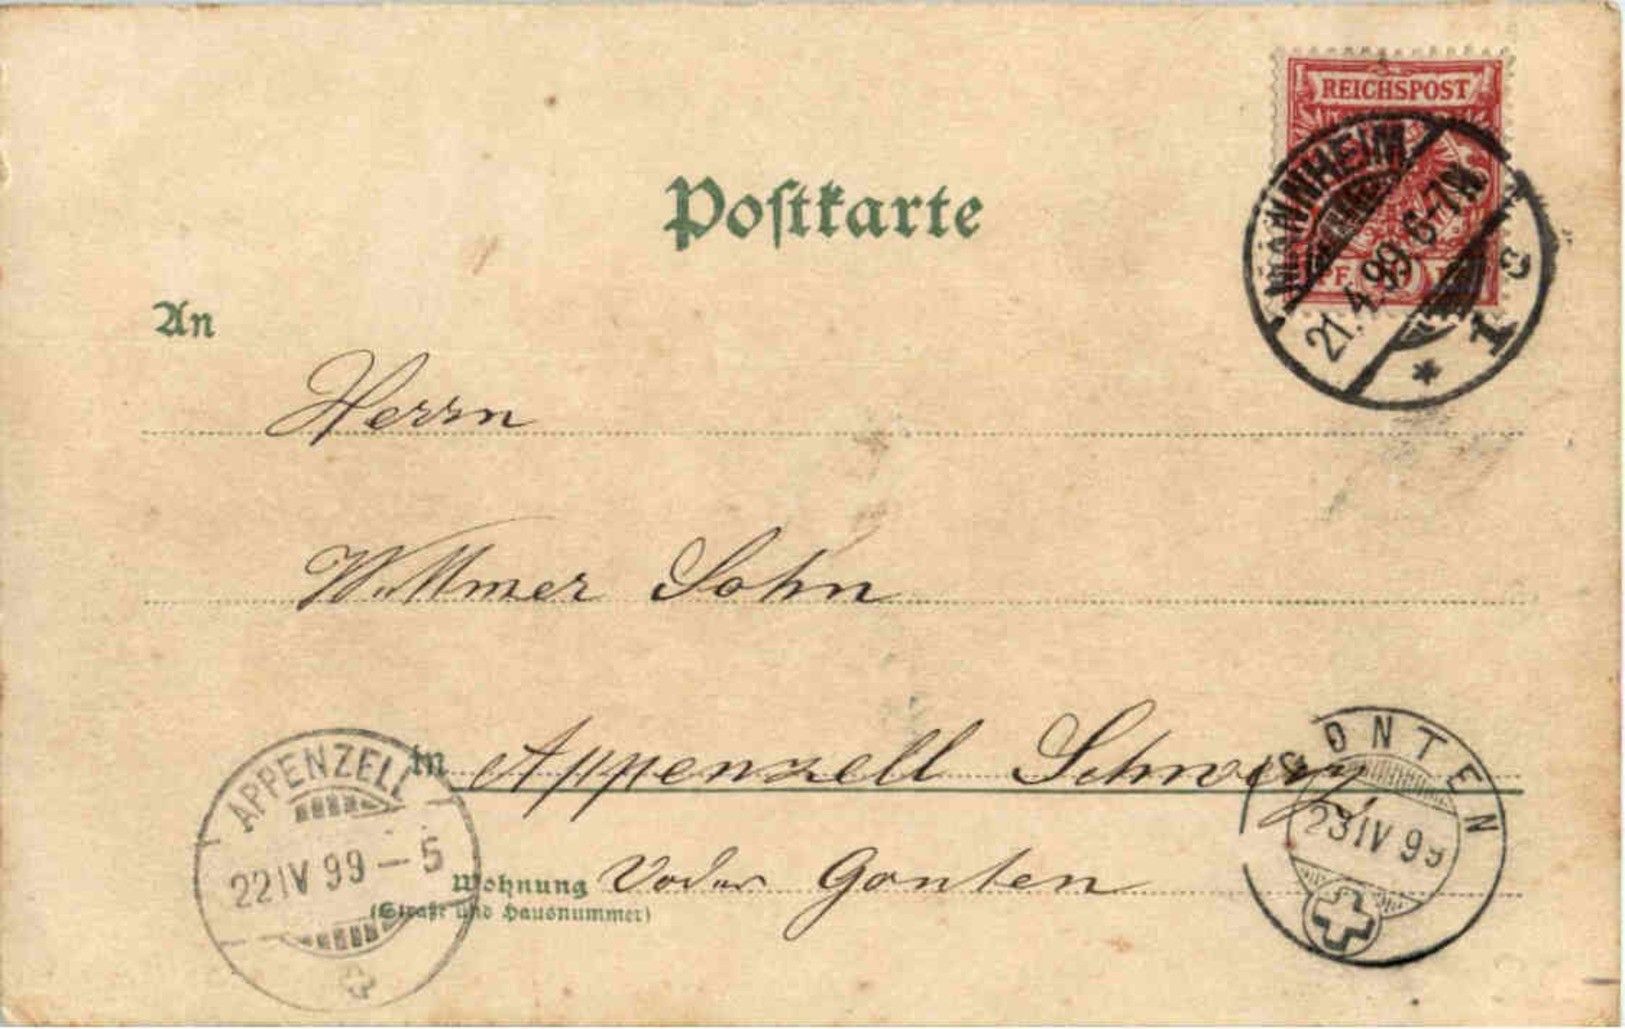 REICHSPOST
MANNHEIM
21.4.99.6-7N.
* 1 c
Postkarte
An
Herrn
Wittmer Sohn
in Appenzell Schweiz
Wohnung Gonten
(Straße und Hausnummer)
APPENZELL
22 IV 99 – 5
GONTEN
23 IV 99